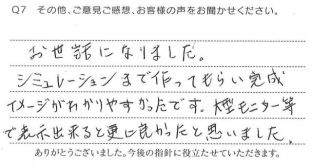 Q7 その他、ご意見ご感想、お客様の声をお聞かせください。
お世話になりました。
シミュレーションまで作ってもらい完成
イメージがわかりやすかったです。大型モニター等
で表示出来ると更に良かったと思いました。
ありがとうございました。今後の指針に役立たせていただきます。